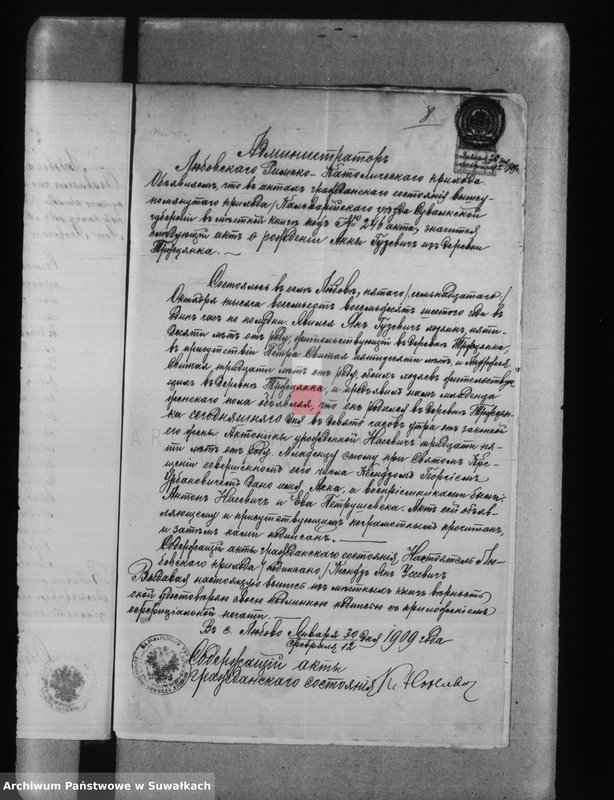 8
Администраторъ
Любовскаго Римско-Католическаго прихода
Объявляетъ, что въ актахъ гражданскаго состоянія выше-
помянутаго прихода /Кальварійскаго уѣзда Сувалкской
губерніи въ мѣстной книгѣ подъ № 246 акта, значится
слѣдующій актъ о рожденіи Анны Гузевичъ изъ деревни
Трофцянка. —
Состоялось въ селѣ Любовъ, пятаго /семьнадцатаго/
Октября тысяча восемьсотъ восемьдесятъ шестого года въ
часъ по полудни. Явился Янъ Гузевичъ
лѣтъ отъ роду, жительствующій въ деревнѣ Трофцянка,
въ присутствіи Петра Свитая пятидесяти лѣтъ, и Андрея
Свитая тридцати лѣтъ отъ роду, обоихъ жительствую-
щихъ въ деревнѣ Трофцянка, и предъявилъ намъ младенца
женскаго пола объявляя, что онъ родился въ деревнѣ Трофцян-
ка сегодняшняго дня въ девять часовъ утра отъ законной
его жены Антонины урожденной Насевичъ тридцати пя-
ти лѣтъ отъ роду. Младенцу этому при Святомъ Кре-
щеніи совершенномъ его числа Ксендзомъ Георгіемъ
Урбановичемъ дано имя, Анна, а воспріемниками были:
Антонъ Насевичъ и Ева Петрушевска. Актъ сей объяв-
ляющему и присутствующимъ неграмотнымъ прочитанъ,
и затѣмъ нами подписанъ. —
Содержащій акты гражданскаго состоянія, Настоятель Лю-
бовскаго прихода /подписано/ Ксендзъ Янъ
настоящую выпись изъ мѣстныхъ книгъ вѣрность
оной удостовѣряю своею подписью съ приложеніемъ
оффиціальной печати.
Въ с. Любово Января 30 дня 1909 года
Февраля 12
Содержащій акты
гражданскаго состоянія К.
Archiwum Państwowe w Suwałkach